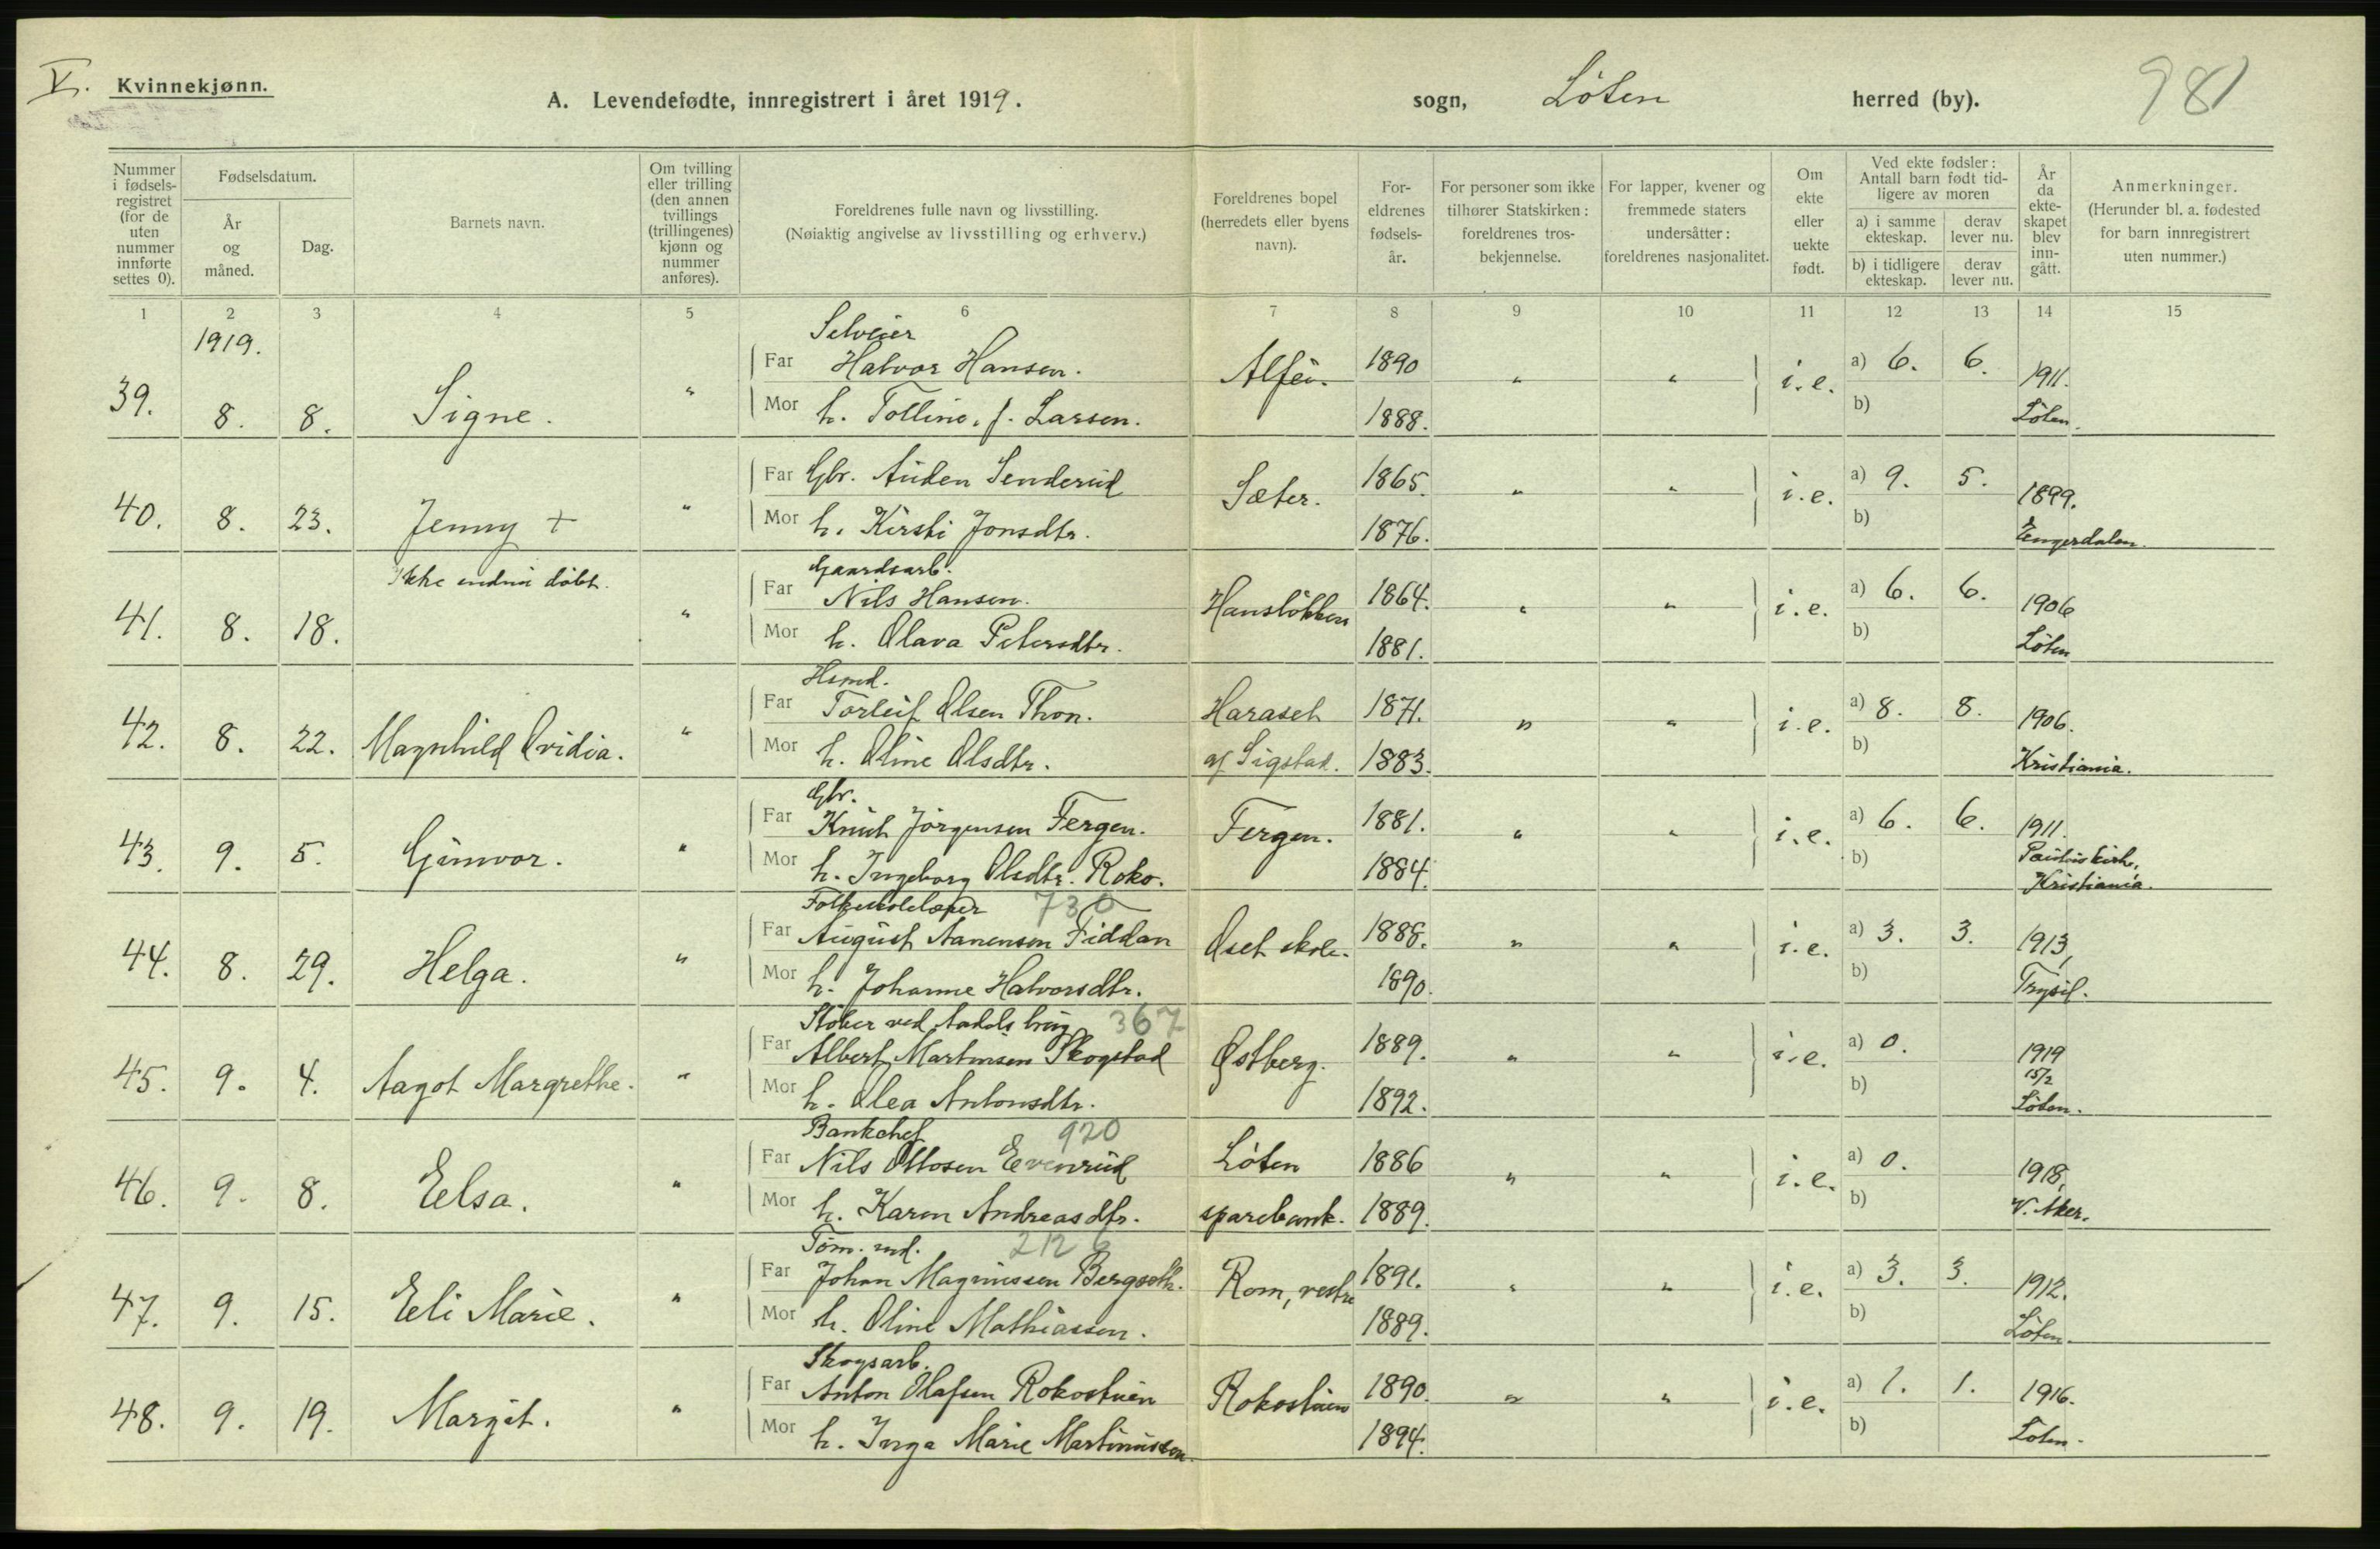 V. Kvinnekjønn.
A. Levendefødte, innregistrert i året 1919. sogn, Löten herred (by). 981
Nummer i fødsels-registret (for de uten nummer innførte settes 0).
Fødselsdatum.
År og måned.
Dag.
Barnets navn.
Om tvilling eller trilling (den annen tvillings (trillingenes) kjønn og nummer anføres).
Foreldrenes fulle navn og livsstilling.
(Nøiaktig angivelse av livsstilling og erhverv.)
Foreldrenes bopel (herredets eller byens navn).
For-eldrenes fødsels-år.
For personer som ikke tilhører Statskirken: foreldrenes tros-bekjennelse.
For lapper, kvener og fremmede staters undersåtter: foreldrenes nasjonalitet.
Om ekte eller uekte født.
Ved ekte fødsler: Antall barn født tid-ligere av moren
a) i samme ekteskap. derav lever nu.
b) i tidligere ekteskap. derav lever nu.
År da ekte-skapet blev inn-gått.
Anmerkninger.
(Herunder bl. a. fødested for barn innregistrert uten nummer.)
1 2 3 4 5 6 7 8 9 10 11 12 13 14 15
1919.
Selveier
Far Halvor Hansen. Alfei. 1890 a) 6. 6. 1911.
39. 8. 8. Signe. " " " i. e.
Mor h. Tolline, f. Larsen. 1888. b) Löten.
Far Gbr. Auden Senderud Sæter. 1865. a) 9. 5. 1899.
40. 8. 23. Jenny + " " " i. e.
Mor h. Kirsti Jonsdtr. 1876. b) Engerdalen.
Ikke endnu döbt. Gaardsarb.
Far Nils Hansen. Hanslökken 1864. a) 6. 6. 1906
41. 8. 18. " " " i. e.
Mor h. Olava Petersdtr. 1881. b) Löten
Hsmd.
Far Torleif Olsen Thon. Haraset 1871. a) 8. 8. 1906.
42. 8. 22. Magnhild Ovidia. " " " i. e.
Mor h. Oline Olsdtr. af Sigstad. 1883. b) Kristiania.
Gbr.
Far Knut Jörgensen Fergen. Fergen. 1881. a) 6. 6. 1911.
43. 9. 5. Gunvor. " " " i. e.
Mor h. Ingeborg Olsdtr. Roko. 1884. b) Paulus kirke, Kristiania.
Folkeskolelærer 730
Far August Aanensen Fiddan Oset skole. 1888. a) 3. 3. 1913,
44. 8. 29. Helga. " " " i. e.
Mor h. Johanne Halvorsdtr. 1890. b) Trysil.
Stöber ved Aadals brug 367
Far Albert Martinsen Skogstad Østberg. 1889. a) 0. 1919
45. 9. 4. Aagot Margrethe. " " " i. e. 15/2
Mor h. Olea Antonsdtr. 1892. b) Löten.
Bankchef 920
Far Nils Ottosen Evenrud Löten 1886 a) 0. 1918,
46. 9. 8. Eelsa. " " " i. e.
Mor h. Karen Andreasdtr. sparebank. 1889. b) V. Aker.
Töm. md. 2126
Far Johan Magnussen Bergseth. Rom, vestre 1891. a) 3. 3. 1912.
47. 9. 15. Eeli Marie. " " " i. e.
Mor h. Oline Mathiassen. 1889. b) Löten.
Skogsarb.
Far Anton Olafsen Rokostuen Rokostuen 1890. a) 1. 1. 1916.
48. 9. 19. Margit. " " " i. e.
Mor h. Inga Marie Martinussen. 1894. b) Löten.